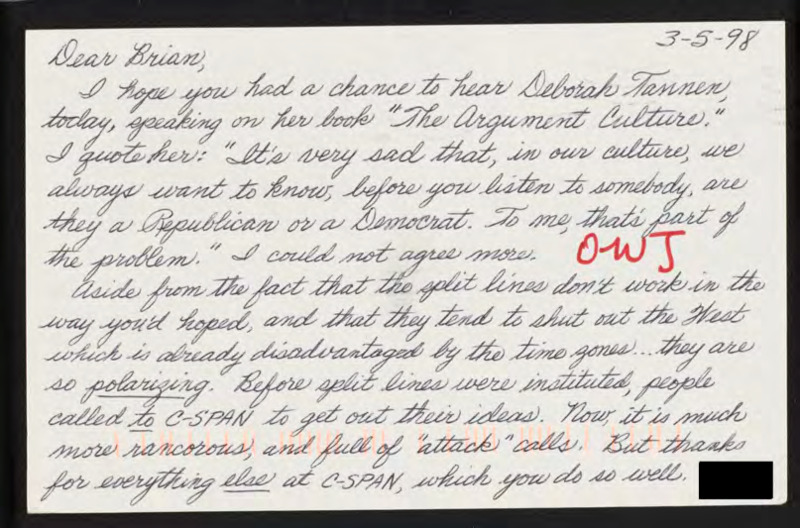 3-5-98
Dear Brian,
I hope you had a chance to hear Deborah Tannen,
today, speaking on her book "The Argument Culture."
I quote her: "It's very sad that, in our culture, we
always want to know, before you listen to somebody, are
they a Republican or a Democrat. To me, that's part of
the problem." I could not agree more. OWJ
Aside from the fact that the split lines don't work in the
way you'd hoped, and that they tend to shut out the West
which is already disadvantaged by the time zones... they are
so polarizing. Before split lines were instituted, people
called to C-SPAN to get out their ideas. Now it is much
more rancorous, and full of "attack" calls. But thanks
for everything else at C-SPAN, which you do so well.